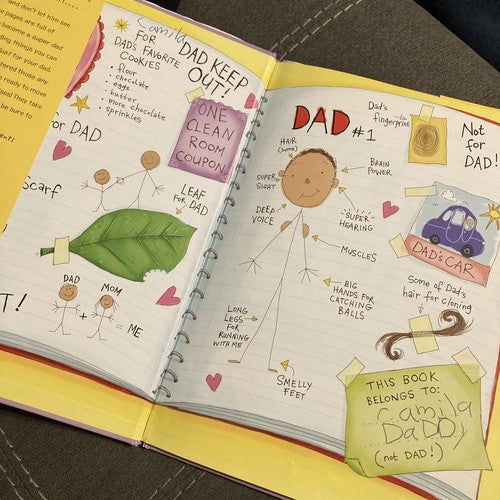 and don't let him see
e pages are full of
become a super dad
ding things you can
just for your dad.
fered those any
ready to more
seal! They take
be sure to
Camila
FOR
DAD'S FAVORITE
COOKIES
• flour
• chocolate
• eggs
• butter
• more chocolate
• sprinkles
DAD KEEP
OUT!
ONE
CLEAN
ROOM
COUPON
for DAD
Scarf
LEAF
FOR DAD
T!
DAD
MOM
+
= ME
DAD #1
HAIR
(some)
BRAIN
POWER
SUPER
SIGHT
DEEP
VOICE
SUPER-
HEARING
MUSCLES
BIG
HANDS FOR
CATCHING
BALLS
LONG
LEGS
FOR
RUNNING
WITH ME
SMELLY
FEET
Dad's
fingerprint
Not
for
DAD!
DAD'S CAR
Some of Dad's
hair for cloning
THIS BOOK
BELONGS TO:
Camila
DaDD
(not DAD!)